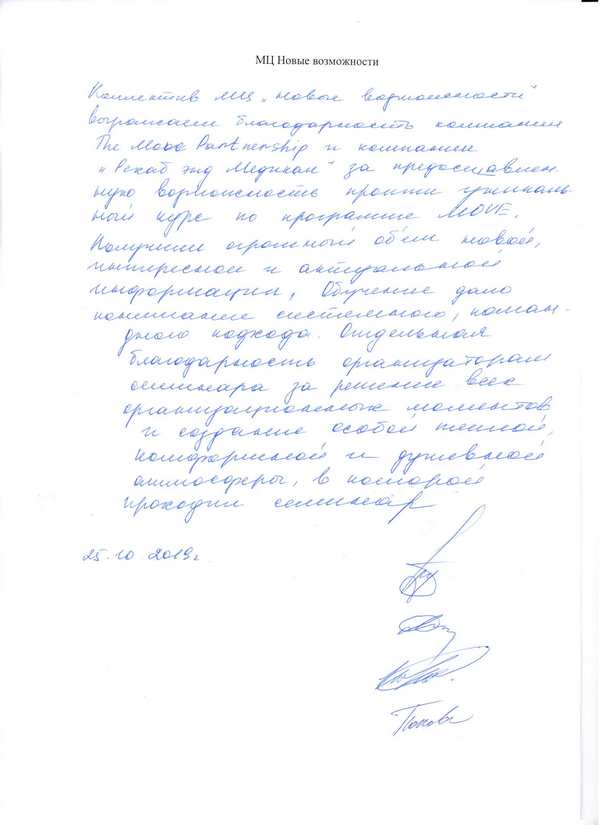 МЦ Новые возможности
Коллектив МЦ „Новые возможности"
выражаем благодарность компании
The Move Partnership и компании
„Рехаб энд Медикал" за предоставлен
ную возможность пройти уникаль
ный курс по программе MOVE.
Получили огромный объем новой,
интересной и актуальной
информации, Обучение дало
понимание системного, коман-
дного подхода. Отдельная
благодарность организаторам
семинара за решение всех
организационных моментов
и создание особой теплой,
комфортной и душевной
атмосферы, в которой
проходил семинар
25.10 2019г.
Попова